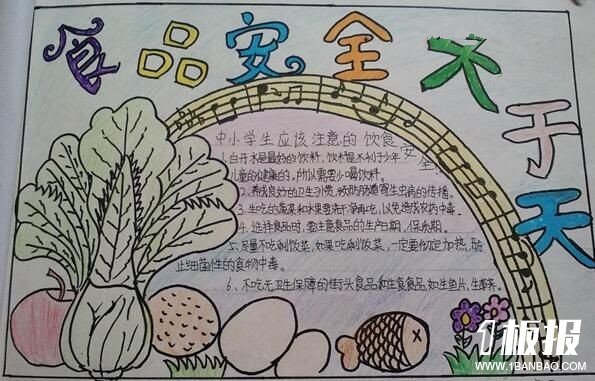 食品安全大于天
中小学生应该注意的饮食安全
1、白开水是最好的饮料,饮料是不利于少年
儿童的健康的,所以需要少喝饮料。
2、养成良好的卫生习惯,预防肠道寄生虫病的传播。
3、生吃的蔬菜和水果要洗干净再吃,以免造成农药中毒。
4、选择食品时,要注意食品的生产日期,保质期。
5、尽量不吃剩饭菜,如果吃剩饭菜,一定要彻底加热,防
止细菌性的食物中毒。
6、不吃无卫生保障的街头食品和生食食品,如生鱼片,
板报
WWW.1BANBAO.COM